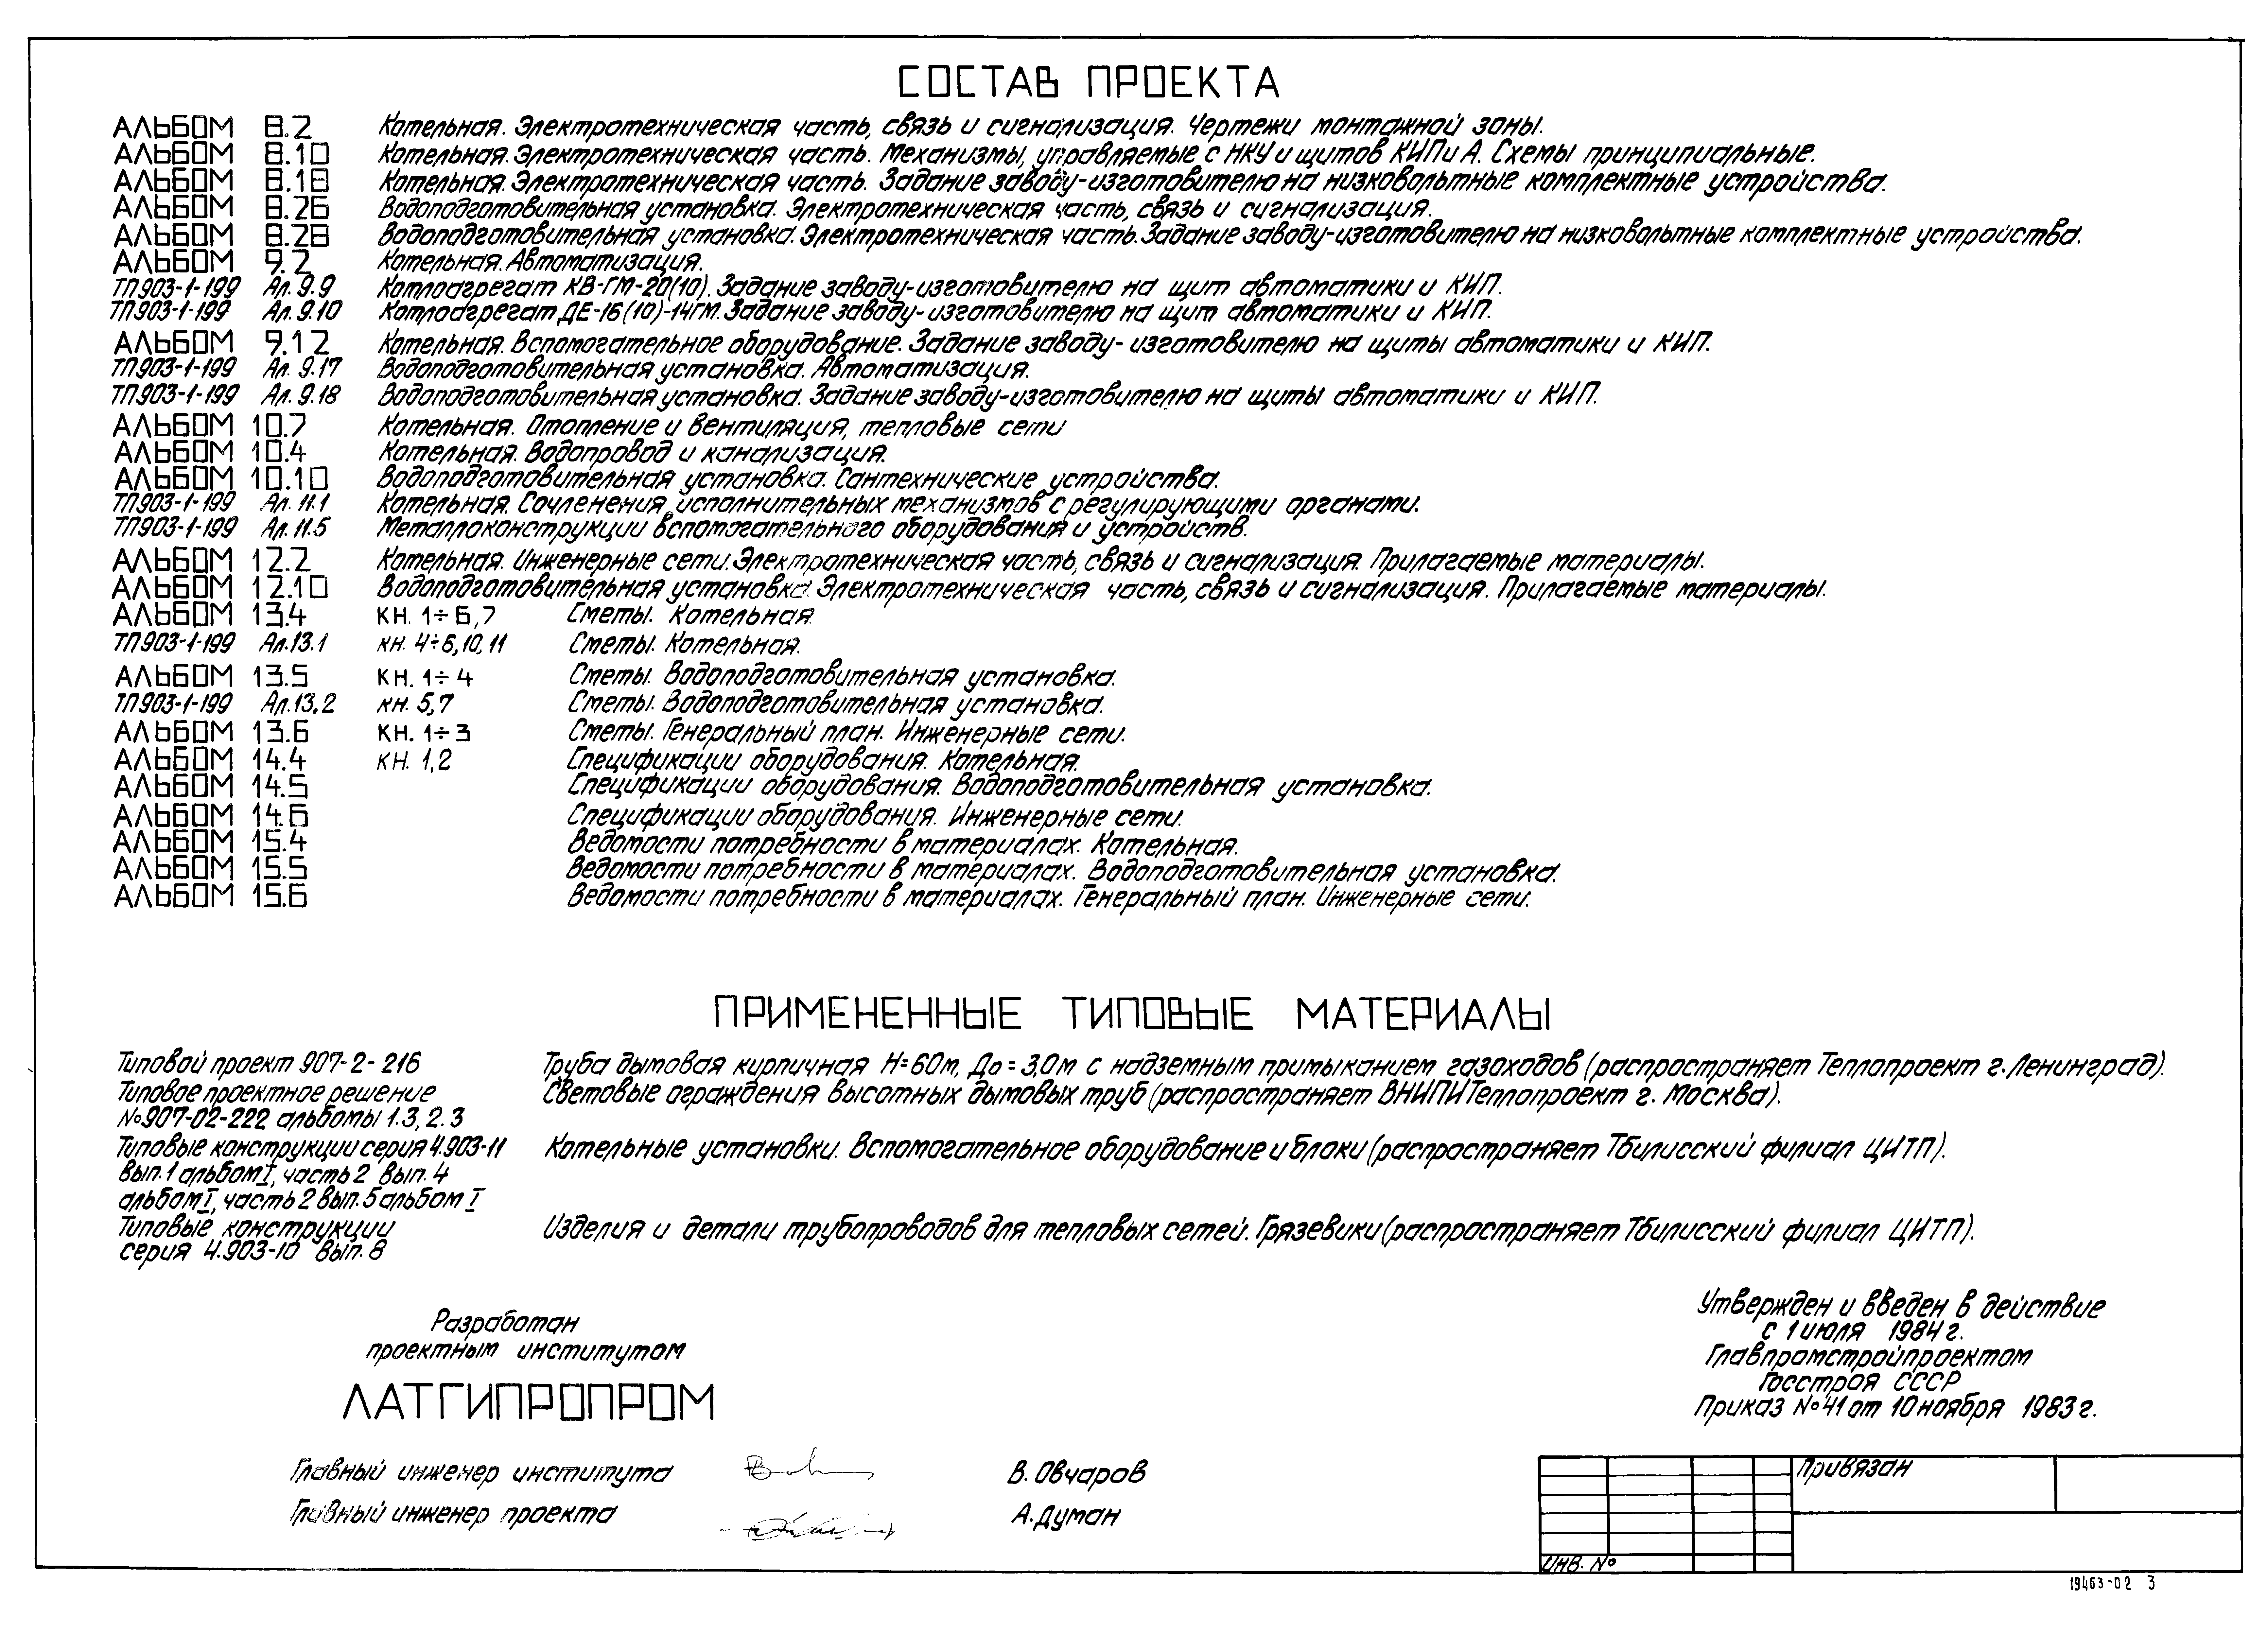 СОСТАВ ПРОЕКТА
АЛЬБОМ 8.2 Котельная. Электротехническая часть, связь и сигнализация. Чертежи монтажной зоны.
АЛЬБОМ 8.10 Котельная. Электротехническая часть. Механизмы, управляемые с НКУ и щитов КИП и А. Схемы принципиальные.
АЛЬБОМ 8.18 Котельная. Электротехническая часть. Задание заводу-изготовителю на низковольтные комплектные устройства.
АЛЬБОМ 8.26 Водоподготовительная установка. Электротехническая часть, связь и сигнализация.
АЛЬБОМ 8.28 Водоподготовительная установка. Электротехническая часть. Задание заводу-изготовителю на низковольтные комплектные устройства.
АЛЬБОМ 9.2 Котельная. Автоматизация.
ТП903-1-199 Ал. 9.9 Котлоагрегат КВ-ГМ-20(10). Задание заводу-изготовителю на щит автоматики и КИП.
ТП903-1-199 Ал. 9.10 Котлоагрегат ДЕ-16(10)-14ГМ. Задание заводу-изготовителю на щит автоматики и КИП.
АЛЬБОМ 9.12 Котельная. Вспомогательное оборудование. Задание заводу-изготовителю на щиты автоматики и КИП.
ТП903-1-199 Ал. 9.17 Водоподготовительная установка. Автоматизация.
ТП903-1-199 Ал. 9.18 Водоподготовительная установка. Задание заводу-изготовителю на щиты автоматики и КИП.
АЛЬБОМ 10.7 Котельная. Отопление и вентиляция, тепловые сети
АЛЬБОМ 10.4 Котельная. Водопровод и канализация.
АЛЬБОМ 10.10 Водоподготовительная установка. Сантехнические устройства.
ТП903-1-199 Ал. 11.1 Котельная. Сочленения исполнительных механизмов с регулирующими органами.
ТП903-1-199 Ал. 11.5 Металлоконструкции вспомогательного оборудования и устройств.
АЛЬБОМ 12.2 Котельная. Инженерные сети. Электротехническая часть, связь и сигнализация. Прилагаемые материалы.
АЛЬБОМ 12.10 Водоподготовительная установка. Электротехническая часть, связь и сигнализация. Прилагаемые материалы.
АЛЬБОМ 13.4 КН. 1÷6,7 Сметы. Котельная.
ТП903-1-199 Ал. 13.1 кн. 4÷6,10,11 Сметы. Котельная.
АЛЬБОМ 13.5 КН. 1÷4 Сметы. Водоподготовительная установка.
ТП903-1-199 Ал. 13.2 кн. 5,7 Сметы. Водоподготовительная установка.
АЛЬБОМ 13.6 КН. 1÷3 Сметы. Генеральный план. Инженерные сети.
АЛЬБОМ 14.4 КН. 1,2 Спецификации оборудования. Котельная.
АЛЬБОМ 14.5 Спецификации оборудования. Водоподготовительная установка.
АЛЬБОМ 14.6 Спецификации оборудования. Инженерные сети.
АЛЬБОМ 15.4 Ведомости потребности в материалах. Котельная.
АЛЬБОМ 15.5 Ведомости потребности в материалах. Водоподготовительная установка.
АЛЬБОМ 15.6 Ведомости потребности в материалах. Генеральный план. Инженерные сети.
ПРИМЕНЕННЫЕ ТИПОВЫЕ МАТЕРИАЛЫ
Типовой проект 907-2-216 Труба дымовая кирпичная Н=60м, До=3,0м с надземным примыканием газоходов (распространяет Теплопроект г. Ленинград).
Типовое проектное решение Световые ограждения высотных дымовых труб (распространяет ВНИПИТеплопроект г. Москва).
№907-02-222 альбомы 1.3, 2.3
Типовые конструкции серия 4.903-11 Котельные установки. Вспомогательное оборудование и блоки (распространяет Тбилисский филиал ЦИТП).
вып. 1 альбом I, часть 2 вып. 4
альбом I, часть 2 вып. 5 альбом I
Типовые конструкции Изделия и детали трубопроводов для тепловых сетей. Грязевики (распространяет Тбилисский филиал ЦИТП).
серия 4.903-10 вып. 8
Разработан
проектным институтом
ЛАТГИПРОПРОМ
Главный инженер института В. Овчаров
Главный инженер проекта А. Думан
Утвержден и введен в действие
с 1 июля 1984 г.
Главпромстройпроектом
Госстроя СССР
Приказ № 41 от 10 ноября 1983 г.
Привязан
ИНВ. №
19463-02 3